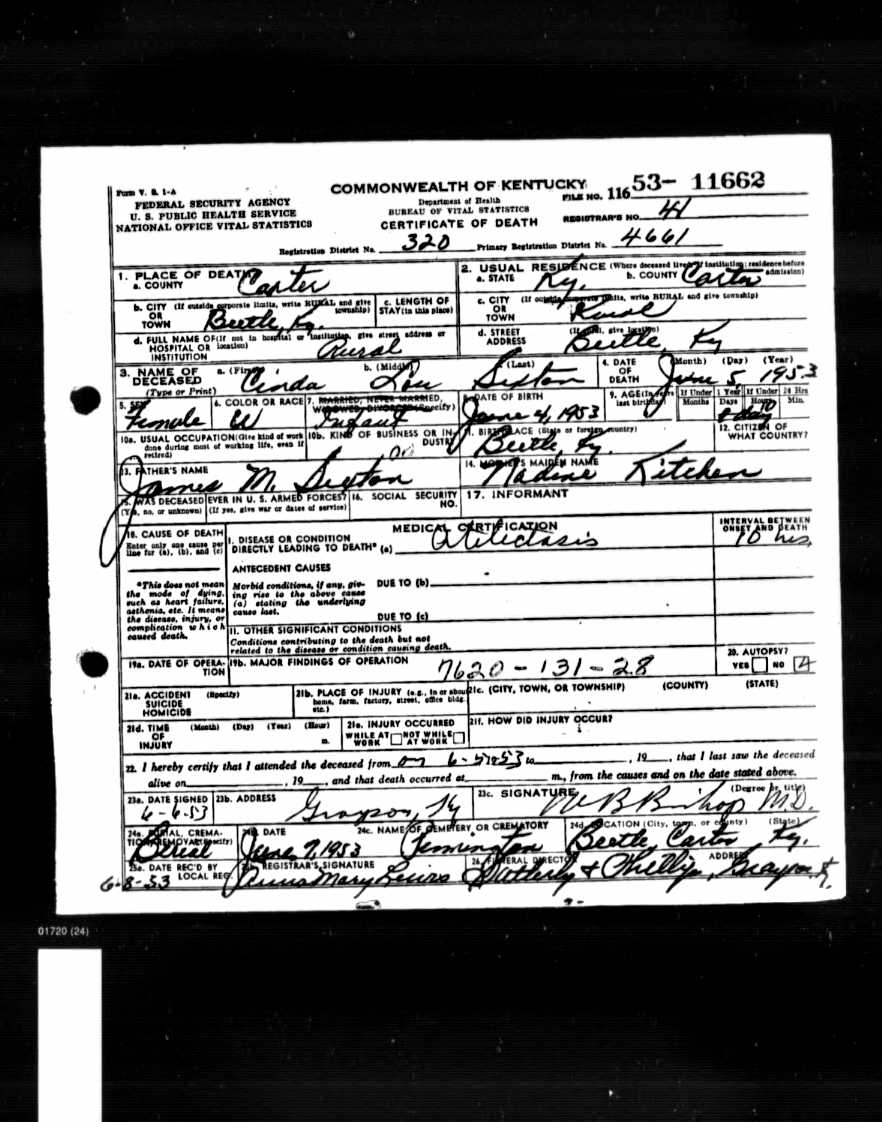 Form V. S. 1-A
FEDERAL SECURITY AGENCY
U. S. PUBLIC HEALTH SERVICE
NATIONAL OFFICE VITAL STATISTICS
COMMONWEALTH OF KENTUCKY
Department of Health
BUREAU OF VITAL STATISTICS
CERTIFICATE OF DEATH
FILE NO. 116 53- 11662
REGISTRAR'S NO. 41
Registration District No. 320 Primary Registration District No. 4661
1. PLACE OF DEATH
a. COUNTY Carter
2. USUAL RESIDENCE (Where deceased lived. If institution: residence before admission)
a. STATE Ky. b. COUNTY Carter
b. CITY (If outside corporate limits, write RURAL and give township)
OR
TOWN Beetle, Ky.
c. LENGTH OF
STAY (in this place)
c. CITY (If outside corporate limits, write RURAL and give township)
OR
TOWN Rural
d. FULL NAME OF (If not in hospital or institution, give street address or location)
HOSPITAL OR
INSTITUTION Rural
d. STREET (If rural, give location)
ADDRESS Beetle, Ky
3. NAME OF
DECEASED
(Type or Print)
a. (First) Cinda b. (Middle) Lou (Last) Sexton
4. DATE
OF
DEATH
(Month) (Day) (Year)
June 5, 1953
5. SEX
Female
6. COLOR OR RACE
W
7. MARRIED, NEVER MARRIED,
WIDOWED, DIVORCED (Specify)
Infant
8. DATE OF BIRTH
June 4, 1953
9. AGE (In years last birthday)
If Under 1 Year
Months Days
If Under 24 Hrs
Hours Min.
10
10a. USUAL OCCUPATION (Give kind of work done during most of working life, even if retired)
10b. KIND OF BUSINESS OR INDUSTRY
11. BIRTHPLACE (State or foreign country)
Beetle, Ky.
12. CITIZEN OF
WHAT COUNTRY?
13. FATHER'S NAME
James M. Sexton
14. MOTHER'S MAIDEN NAME
Nadine Kitchen
15. WAS DECEASED EVER IN U. S. ARMED FORCES?
(Yes, no, or unknown) (If yes, give war or dates of service)
16. SOCIAL SECURITY
NO.
17. INFORMANT
18. CAUSE OF DEATH
Enter only one cause per
line for (a), (b), and (c)
MEDICAL CERTIFICATION
I. DISEASE OR CONDITION
DIRECTLY LEADING TO DEATH* (a) Atelectasis
INTERVAL BETWEEN
ONSET AND DEATH
10 hrs.
*This does not mean
the mode of dying,
such as heart failure,
asthenia, etc. It means
the disease, injury, or
complication which
caused death.
ANTECEDENT CAUSES
Morbid conditions, if any, giv-
ing rise to the above cause
(a) stating the underlying
cause last.
DUE TO (b)
DUE TO (c)
II. OTHER SIGNIFICANT CONDITIONS
Conditions contributing to the death but not
related to the disease or condition causing death.
19a. DATE OF OPERA-
TION
19b. MAJOR FINDINGS OF OPERATION
7620-131-28
20. AUTOPSY?
YES NO
4
21a. ACCIDENT (Specify)
SUICIDE
HOMICIDE
21b. PLACE OF INJURY (e.g., in or about
home, farm, factory, street, office bldg
etc.)
21c. (CITY, TOWN, OR TOWNSHIP) (COUNTY) (STATE)
21d. TIME (Month) (Day) (Year) (Hour)
OF
INJURY m.
21e. INJURY OCCURRED
WHILE AT WORK NOT WHILE AT WORK
21f. HOW DID INJURY OCCUR?
22. I hereby certify that I attended the deceased from on 6-5-1953 to , 19 , that I last saw the deceased
alive on , 19 , and that death occurred at m., from the causes and on the date stated above.
23a. DATE SIGNED
6-6-53
23b. ADDRESS
Grayson, Ky
23c. SIGNATURE (Degree or title)
W B Bishop M.D.
24a. BURIAL, CREMA-
TION, REMOVAL (Specify)
Burial
24b. DATE
June 7, 1953
24c. NAME OF CEMETERY OR CREMATORY
24d. LOCATION (City, town, or county) (State)
Beetle, Carter Ky.
25a. DATE REC'D BY
LOCAL REG.
6-8-53
25b. REGISTRAR'S SIGNATURE
Anna Mary Lewis
26. FUNERAL DIRECTOR ADDRESS
& Phillips, Grayson, K.
01720 (24)